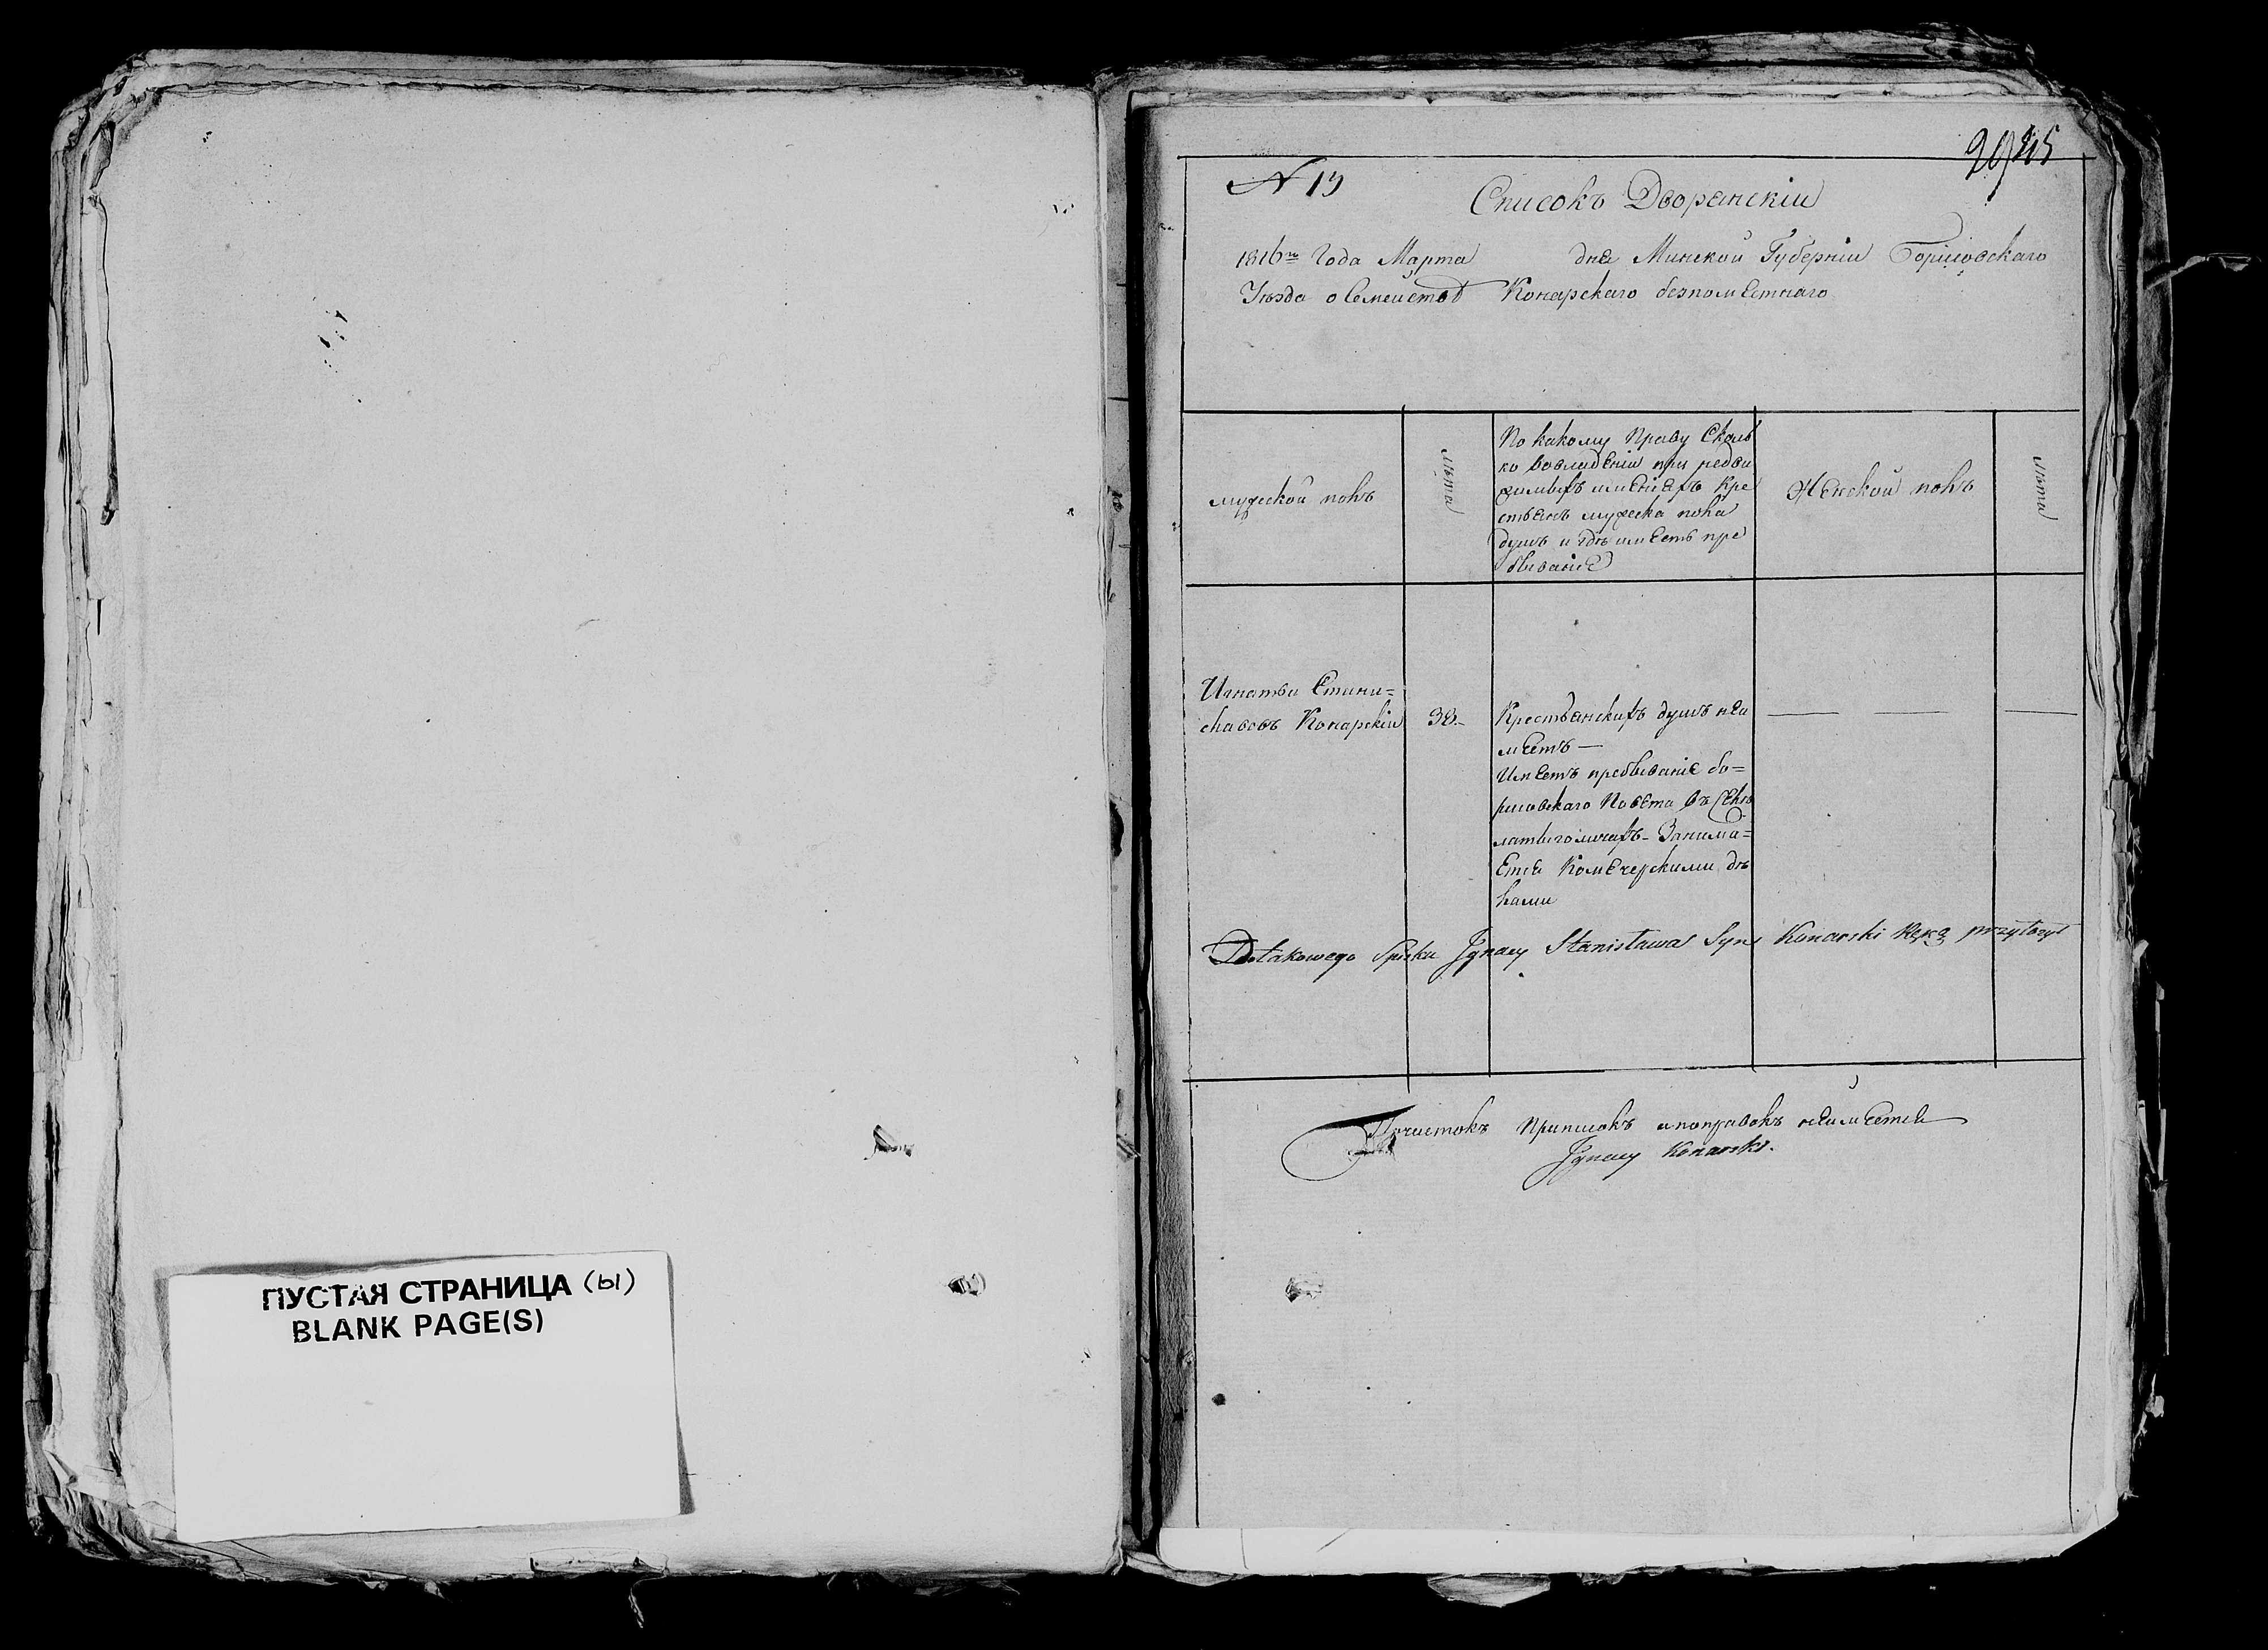 ПУСТАЯ СТРАНИЦА (ы)
BLANK PAGE(S)
N 13
Списокъ Дворянскій
1816го Года Марта дня Минской Губерніи Борисовскаго
Уѣзда о Семействѣ Конарскаго безпомѣстнаго
мужской полъ
лѣта
По какому Праву Сколь
ко вовладѣніи при недви
жимыхъ имѣніяхъ кре
стьянъ мужеска пола
душъ и гдѣ имѣетъ пре
бываніе
Женской полъ
лѣта
Игнатьи Стани=
славовъ Конарскій
38.
Крестьянскихъ душъ неи
мѣетъ —
Имѣетъ пребываніе бо=
рисовскаго Повѣта въ Селѣ
латыголичахъ - Занима=
ется Комѣческими дѣ
лами
Dotakowego Spisku Jgnacy Stanisława Syn Konarski Rękę przyłożył
Почистокъ Приписокъ ипоправокъ неимѣется
Jgnacy Konarski.